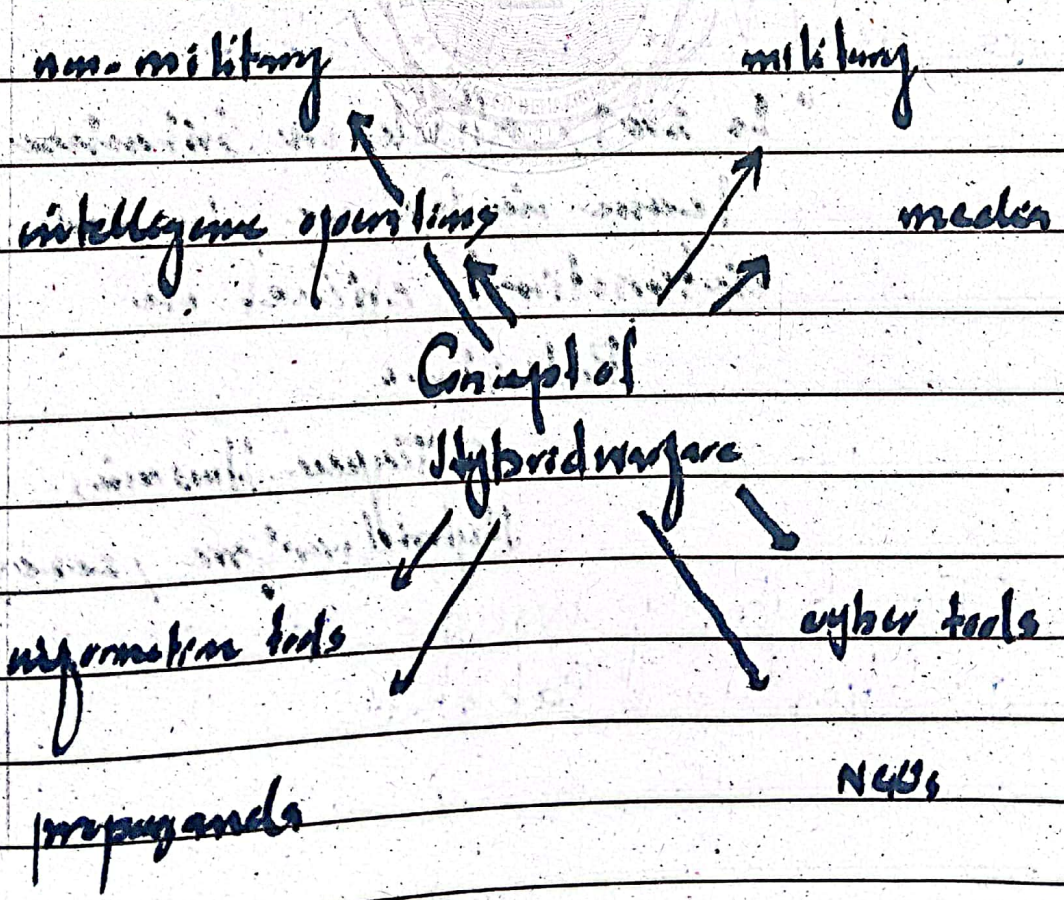 non-military military
intellegence operations media
Concept of
Hybrid warfare
information tools cyber tools
propaganda NGOs